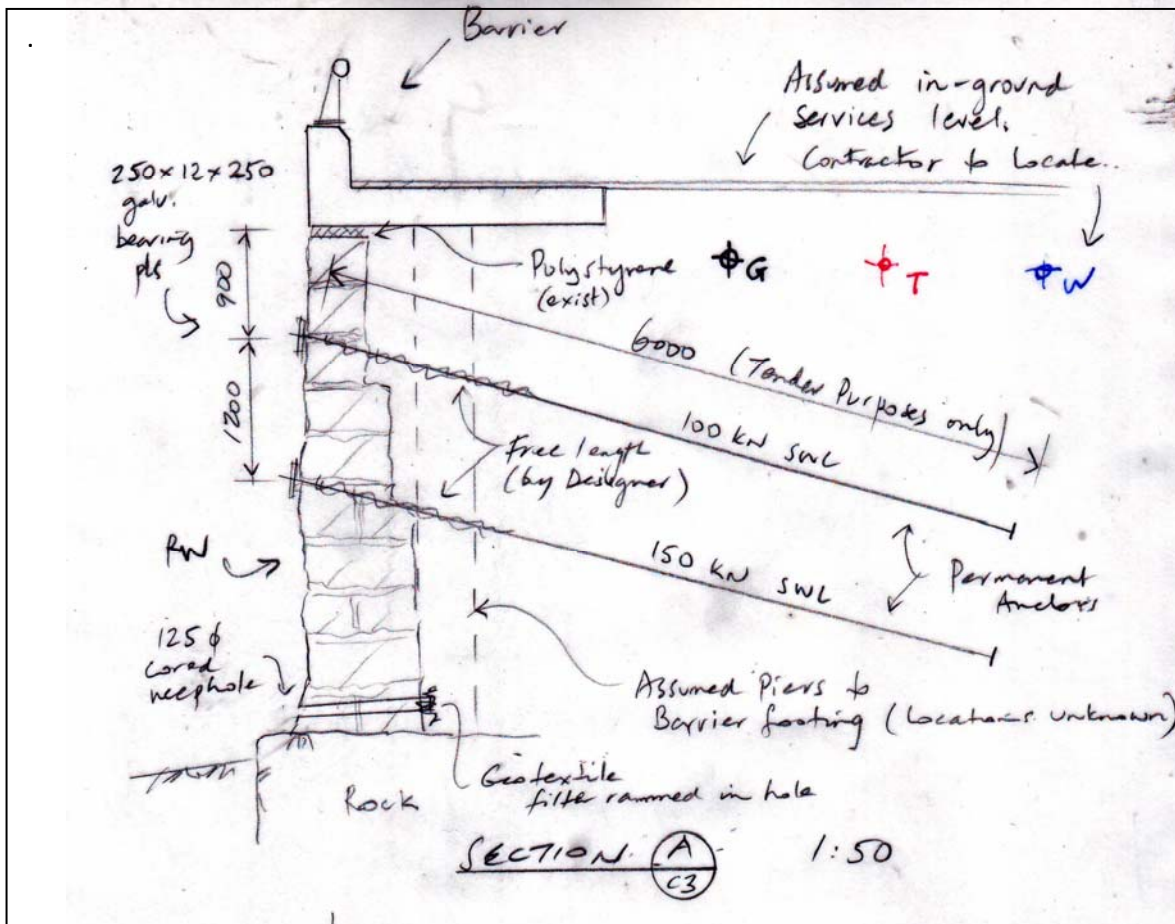 Barrier
Assumed in-ground
Services level.
Contractor to Locate..
250 x 12 x 250
galv.
bearing
pls
900
1200
Polystyrene
(exist)
G
T
W
6000 (Tender Purposes only)
100 KN SWL
Free length
(by Designer)
150 KN SWL
Permanent
Anchors
RW
125 ϕ
cored
weephole
Assumed Piers to
Barrier footing (Locations unknown)
Geotextile
filter rammed in hole
Rock
SECTION A 1:50
C3